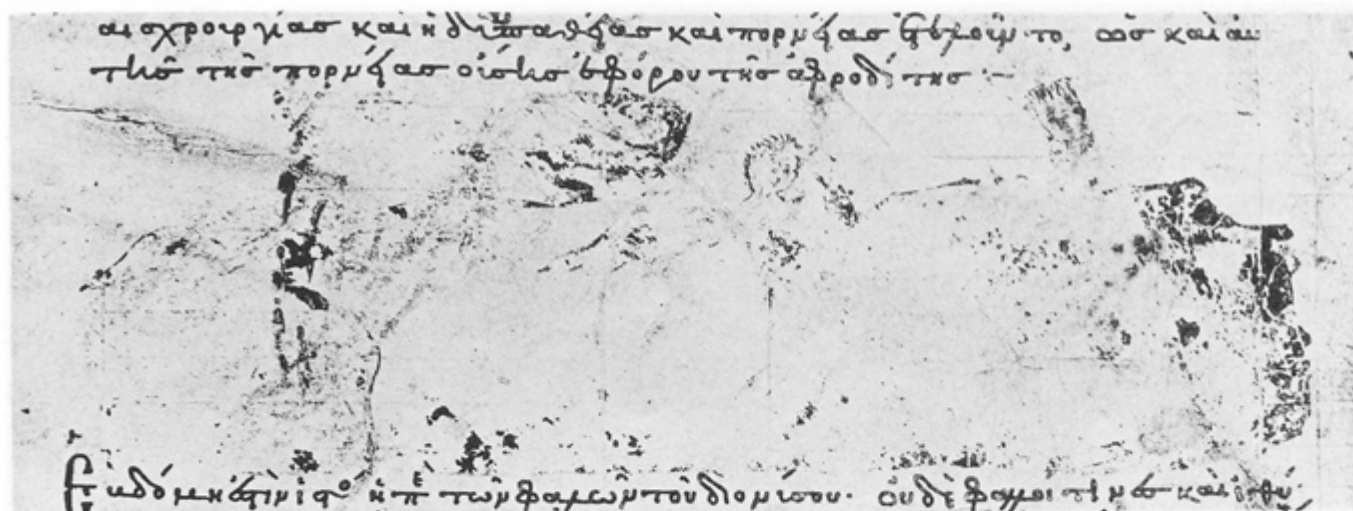 αισχρουργίας και ἡδυπαθείας και πορνείας ἐτελοῦντο, ὡς και αυ
τῆς τῆς πορνείας οὔσης ἐφόρου τῆς ἀφροδίτης :~
Ἑβδόμη ἐστὶν ἱο ἡ πε τῶν φαλλῶν τοῦ διονύσου· οὐδὲ φαλλοί τινες και ἰθυ